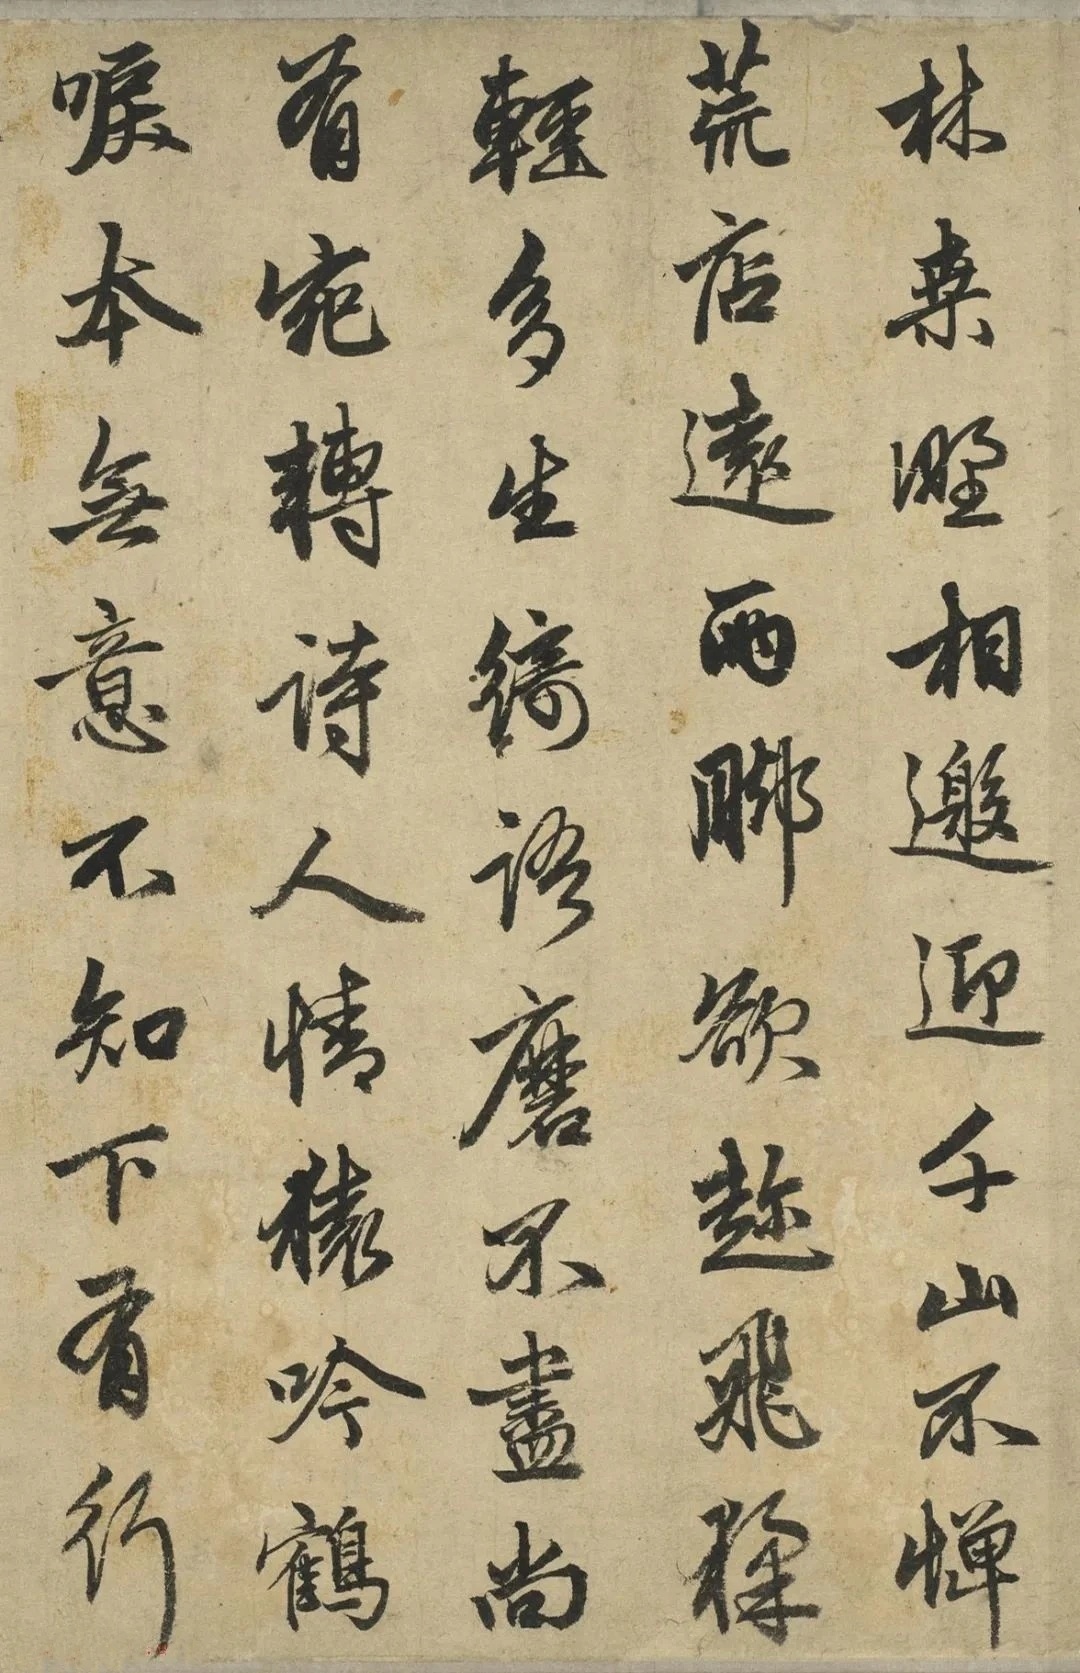 林桒野相邀迎千山不憚
荒店遠兩脚欲趂飛猱
輕多生綺語磨不盡尚
有宛轉詩人情猿吟鶴
唳本無意不知下有行